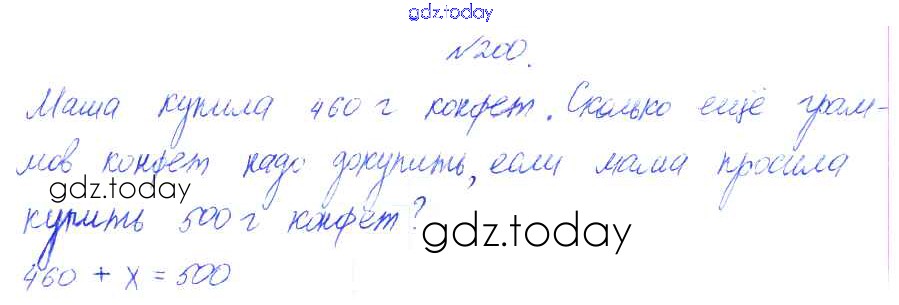 gdz.today
№200.
Маша купила 460 г конфет. Сколько ещё грам-
мов конфет надо докупить, если мама просила
gdz.today
купить 500 г конфет?
gdz.today
460 + x = 500